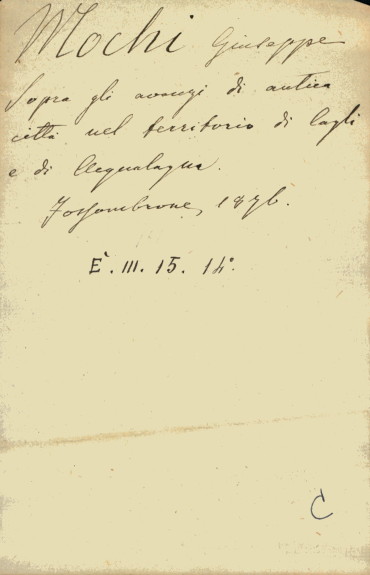 Mochi Giuseppe
Sopra gli avanzi di antica
città nel territorio di Cagli
e di Acqualagna.
Fossombrone, 1876.
E. III. 15. 14°.
C